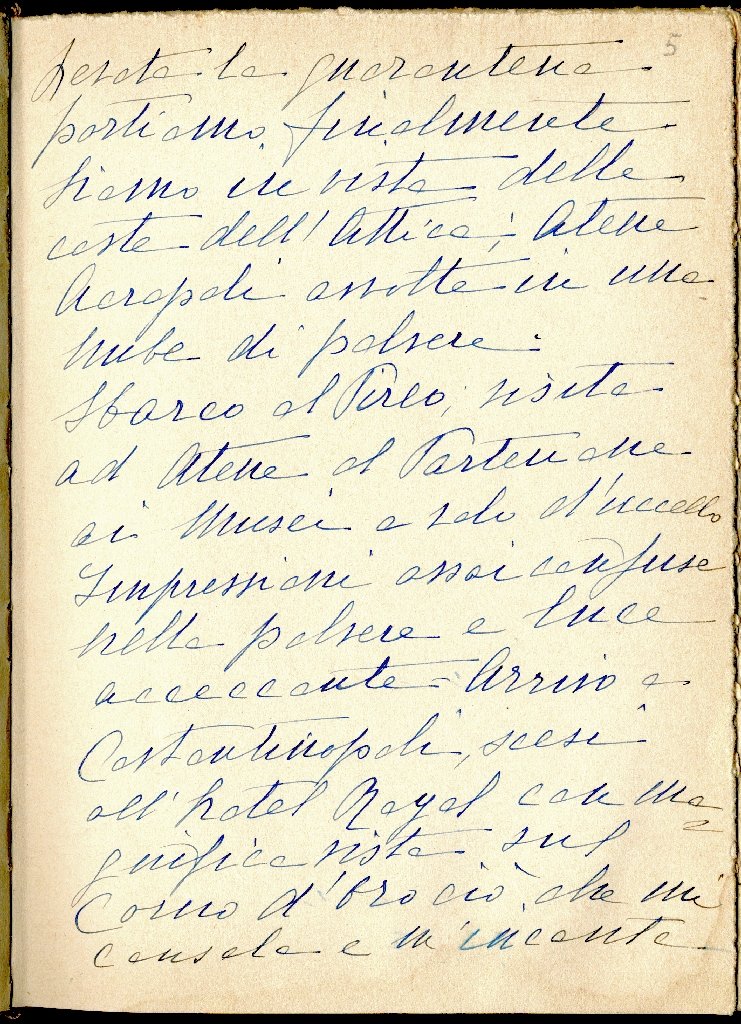 5
Levata la quarantena
partiamo finalmente
siamo in vista delle
coste dell'Attica; Atene
Acropoli avvolte in una
nube di polvere.
Sbarco al Pireo; visita
ad Atene al Partenone
ai Musei a volo d'uccello
Impressioni assai confuse
nella polvere e luce
accecante - Arrivo a
Costantinopoli, scesi
all'hotel Royal con ma=
gnifica vista sul
Corno d'Oro ciò che mi
consola e m'incanta